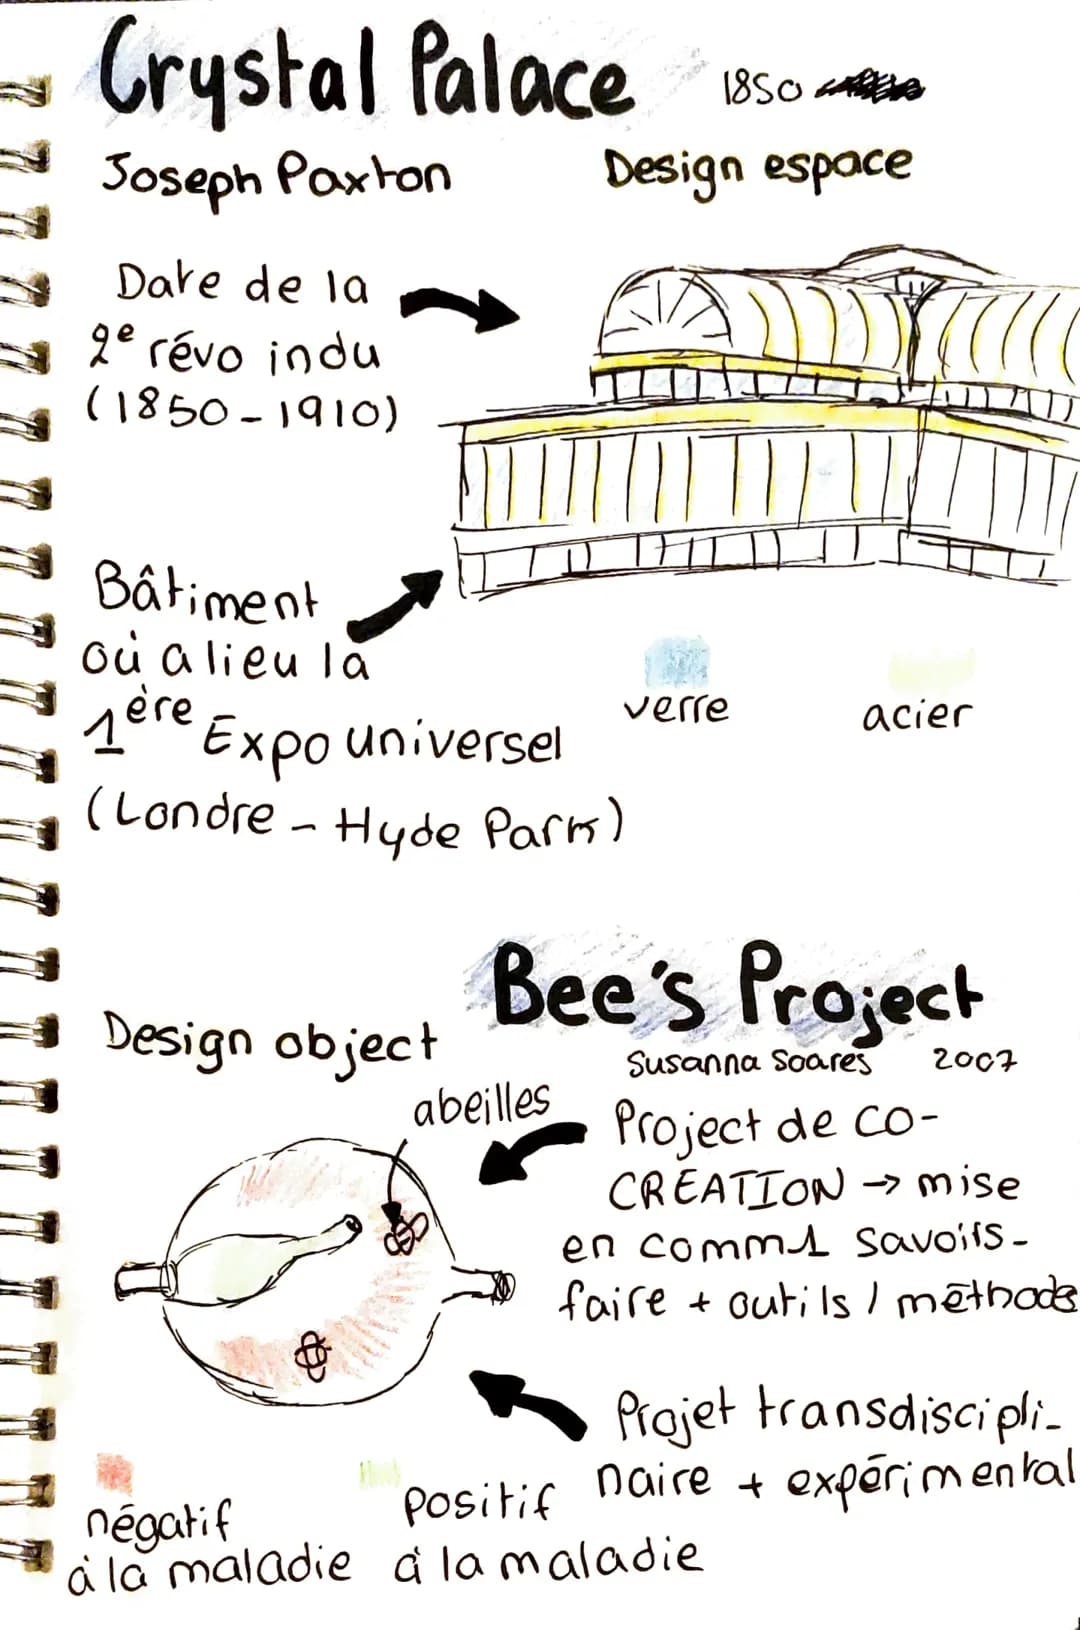 Crystal Palace 1850
Joseph Paxton Design espace
Date de la
2e révo indu
(1850-1910)
Bâtiment
où a lieu la
1ère Expo universel
(Londre - Hyde Park)
verre acier
Bee's Project
Susanna Soares 2007
Design object
abeilles
Project de CO-
CREATION → mise
en comm1 savoirs-
faire + outils / méthods
Projet transdiscipli-
naire + expérimental
négatif
à la maladie
positif
à la maladie